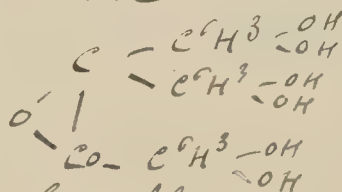 C⁶H³ OH
OH
C
C⁶H³ OH
OH
O
Co C⁶H³ OH
OH